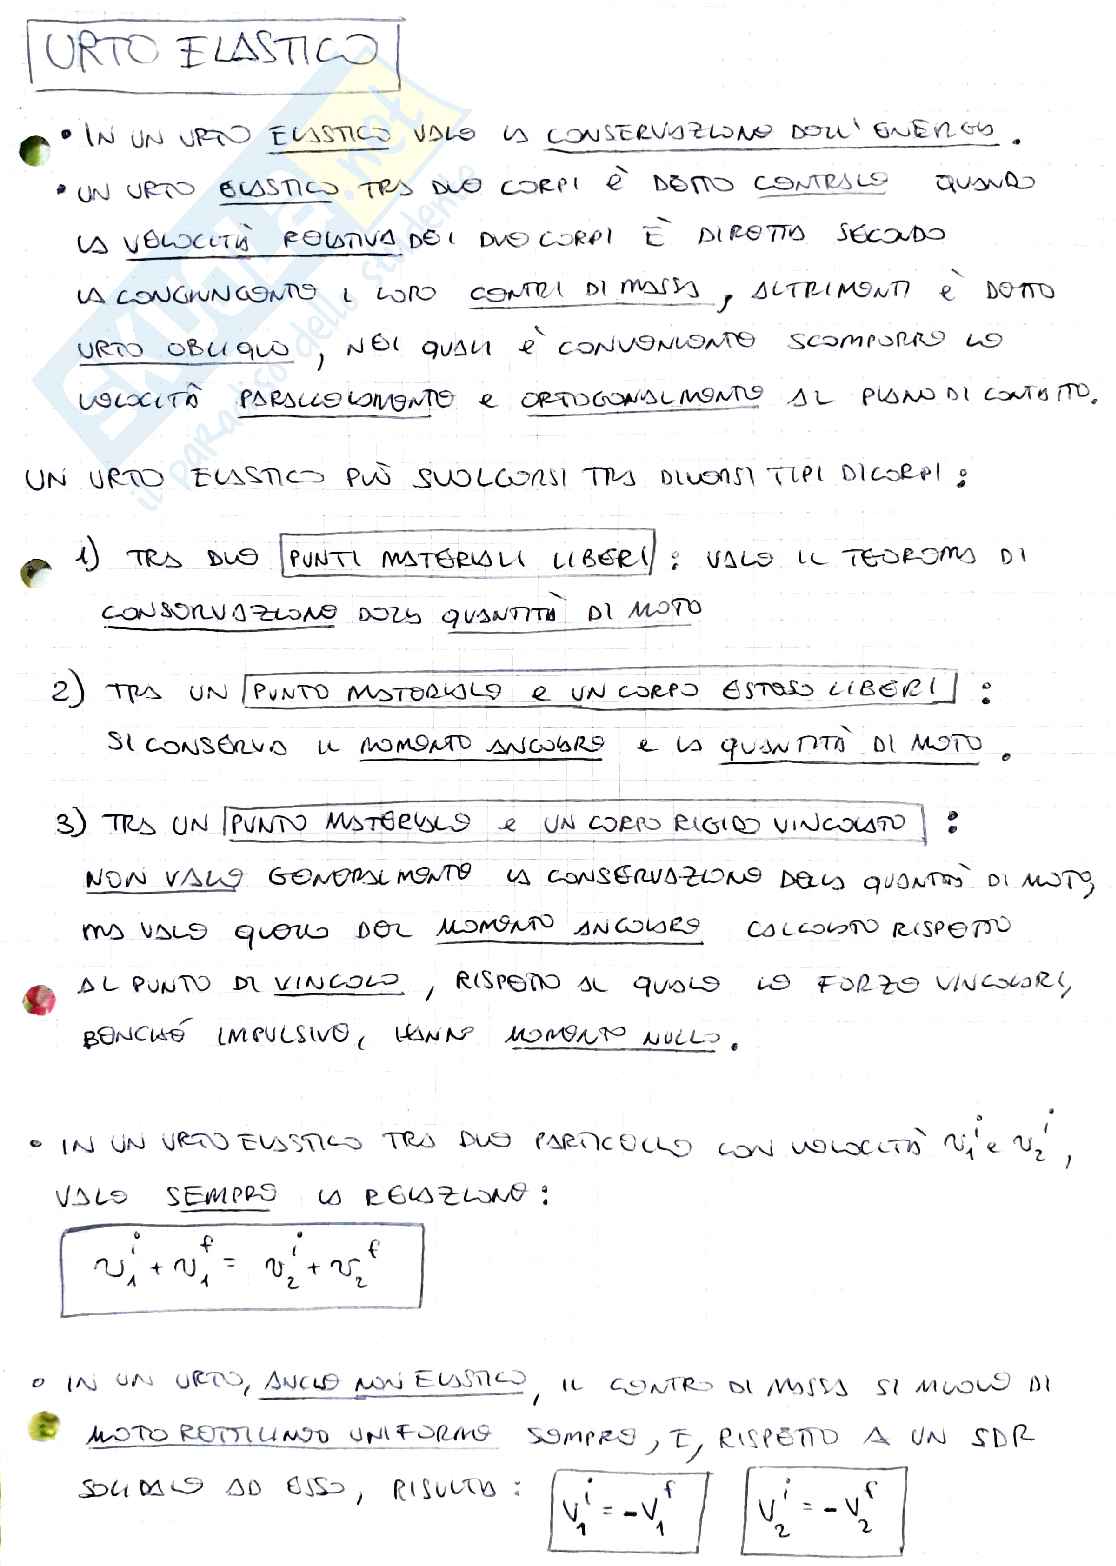 URTO ELASTICO
• IN UN URTO ELASTICO VALE LA CONSERVAZIONE DELL'ENERGIA.
• UN URTO ELASTICO TRA DUE CORPI È DETTO CENTRALE QUANDO
LA VELOCITÀ RELATIVA DEI DUE CORPI È DIRETTA SECONDO
LA CONGIUNGENTE I LORO CENTRI DI MASSA, ALTRIMENTI È DETTO
URTO OBLIQUO, NEI QUALI È CONVENIENTE SCOMPORRE LE
VELOCITÀ PARALLELAMENTE E ORTOGONALMENTE AL PIANO DI CONTATTO.
UN URTO ELASTICO PUÒ SVOLGERSI TRA DIVERSI TIPI DI CORPI:
1) TRA DUE PUNTI MATERIALI LIBERI: VALE IL TEOREMA DI
CONSERVAZIONE DELLA QUANTITÀ DI MOTO
2) TRA UN PUNTO MATERIALE E UN CORPO ESTESO LIBERI:
SI CONSERVA IL MOMENTO ANGOLARE E LA QUANTITÀ DI MOTO.
3) TRA UN PUNTO MATERIALE E UN CORPO RIGIDO VINCOLATO:
NON VALE GENERALMENTE LA CONSERVAZIONE DELLA QUANTITÀ DI MOTO,
MA VALE QUELLA DEL MOMENTO ANGOLARE CALCOLATO RISPETTO
AL PUNTO DI VINCOLO, RISPETTO AL QUALE LE FORZE VINCOLARI,
BENCHÉ IMPULSIVE, HANNO MOMENTO NULLO.
• IN UN URTO ELASTICO TRA DUE PARTICELLE CON VELOCITÀ v₁ⁱ e v₂ⁱ,
VALE SEMPRE LA RELAZIONE:
v₁ⁱ + v₁ᶠ = v₂ⁱ + v₂ᶠ
• IN UN URTO, ANCHE NON ELASTICO, IL CENTRO DI MASSA SI MUOVE DI
MOTO RETTILINEO UNIFORME SEMPRE, E, RISPETTO A UN SDR
SOLIDALE AD ESSO, RISULTA: V₁ⁱ = -V₁ᶠ V₂ⁱ = -V₂ᶠ
SKUOLA.net
il paradiso dello studente